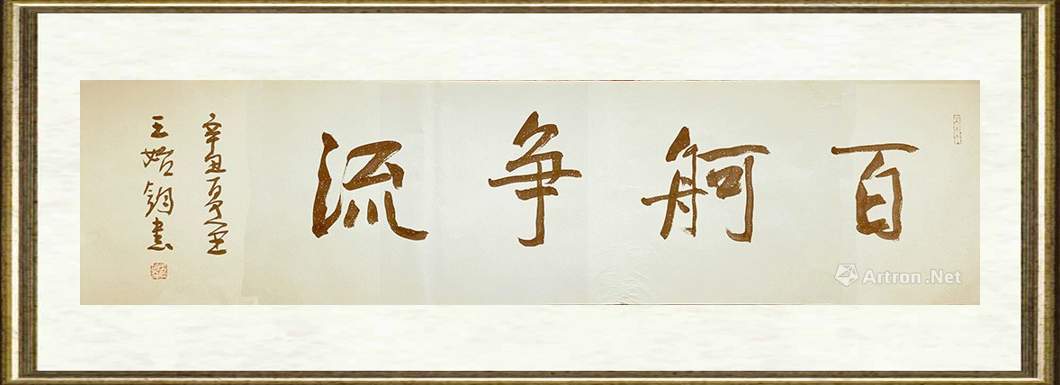 百舸争流
辛丑夏至
王始鈞書
Artron.Net